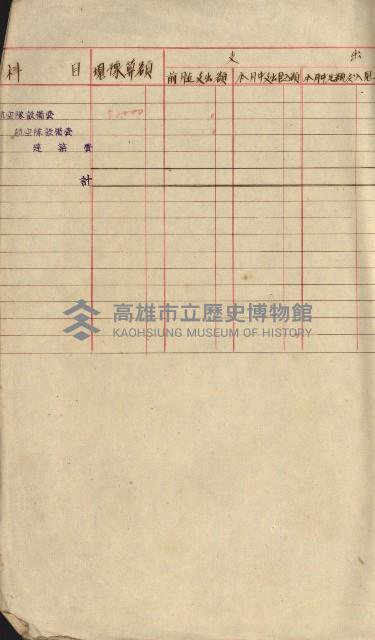 支 出
科 目 現豫算額 前月迄支出額 本月中支出
航空隊設備費
航空隊設備費
建築費
計
高雄市立歷史博物館
KAOHSIUNG MUSEUM OF HISTORY